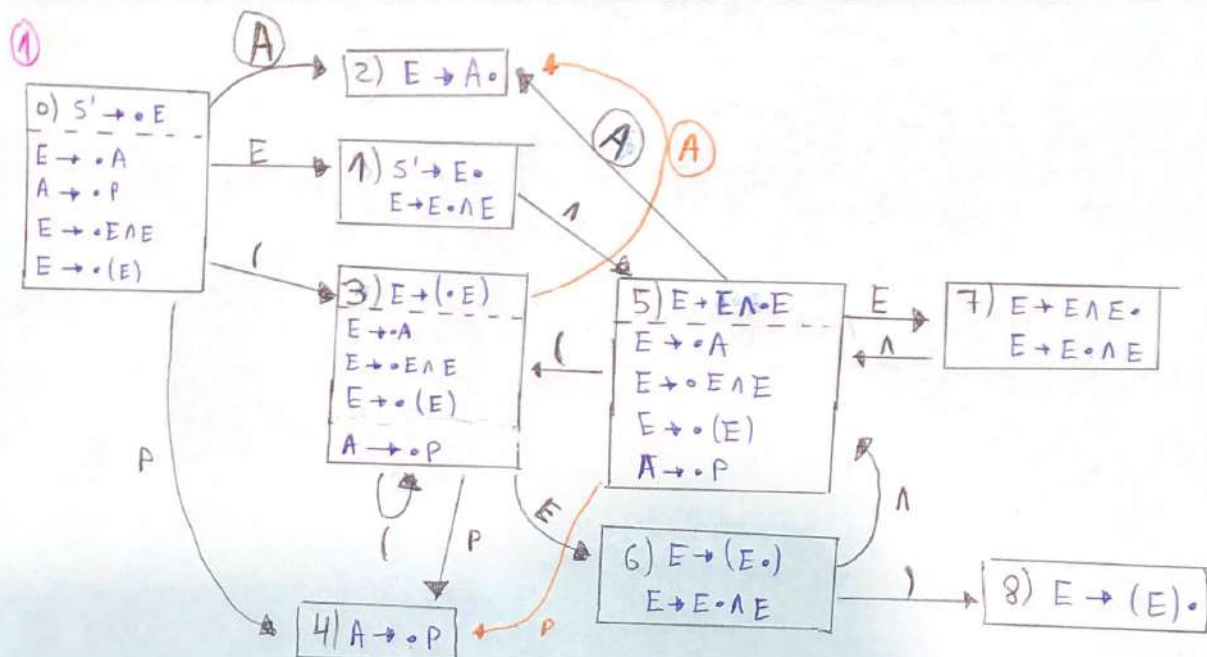 1
A
2) E → A •
0) S' → • E
E → • A
A → • P
E → • E ∧ E
E → • (E)
E
1) S' → E •
E → E • ∧ E
A
A
∧
(
3) E → ( • E)
E → • A
E → • E ∧ E
E → • (E)
A → • P
(
5) E → E ∧ • E
E → • A
E → • E ∧ E
E → • (E)
A → • P
E
∧
7) E → E ∧ E •
E → E • ∧ E
P
(
P
E
6) E → (E • )
E → E • ∧ E
∧
)
8) E → (E) •
4) A → • P
P